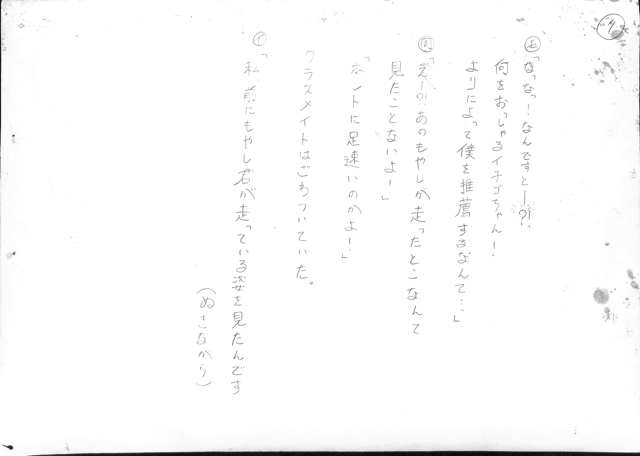 モ「なっなっ！なんですとー？！
何をおっしゃるイチゴちゃん！
よりによって僕を推薦するなんて…」
「えーっ！あのもやしが走ったとこなんて
見たことないよー！」
「ホントに足速いのかよー！」
クラスメイトはざわついていた。
イ「私、前にもやし君が走っている姿を見たんです
（ぬきながら）